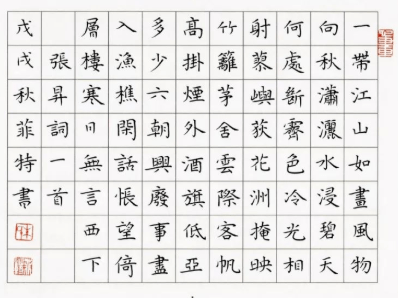 一帶江山如畫風物
向秋瀟灑水浸碧天
何處斷霽色冷光相
射蓼嶼荻花洲掩映
竹籬茅舍雲際客帆
高掛煙外酒旗低亞
多少六朝興廢事盡
入漁樵閑話悵望倚
層樓寒日無言西下
張昇詞一首
戊戌秋菲特書